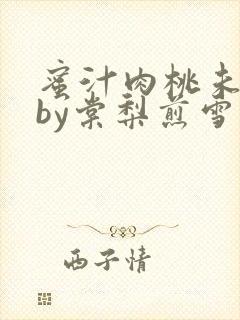 蜜汁肉桃未
by棠梨煎雪
西子情